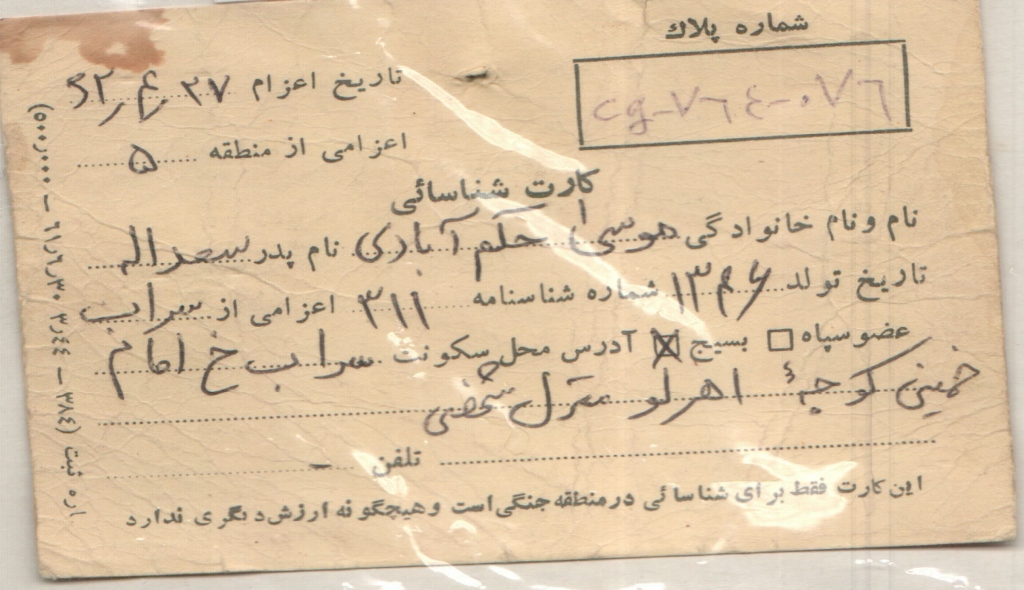 شماره پلاك
cg-٧٦٤-٠٧٦
تاریخ اعزام ۲۷
اعزامی از منطقه ۵
کارت شناسائی
نام و نام خانوادگی موسی حکم آبادی نام پدر سعداله
تاریخ تولد شماره شناسنامه ۳۱۱ اعزامی از سراب
عضو سپاه □ بسیج ☒ آدرس محل سکونت سراب خ امام
خمینی کوچهٔ اهرلو منزل شخصی
تلفن –
این کارت فقط برای شناسائی در منطقه جنگی است و هیچگونه ارزش دیگری ندارد
ثبت (۳۸٤ – ۳ر٤٤